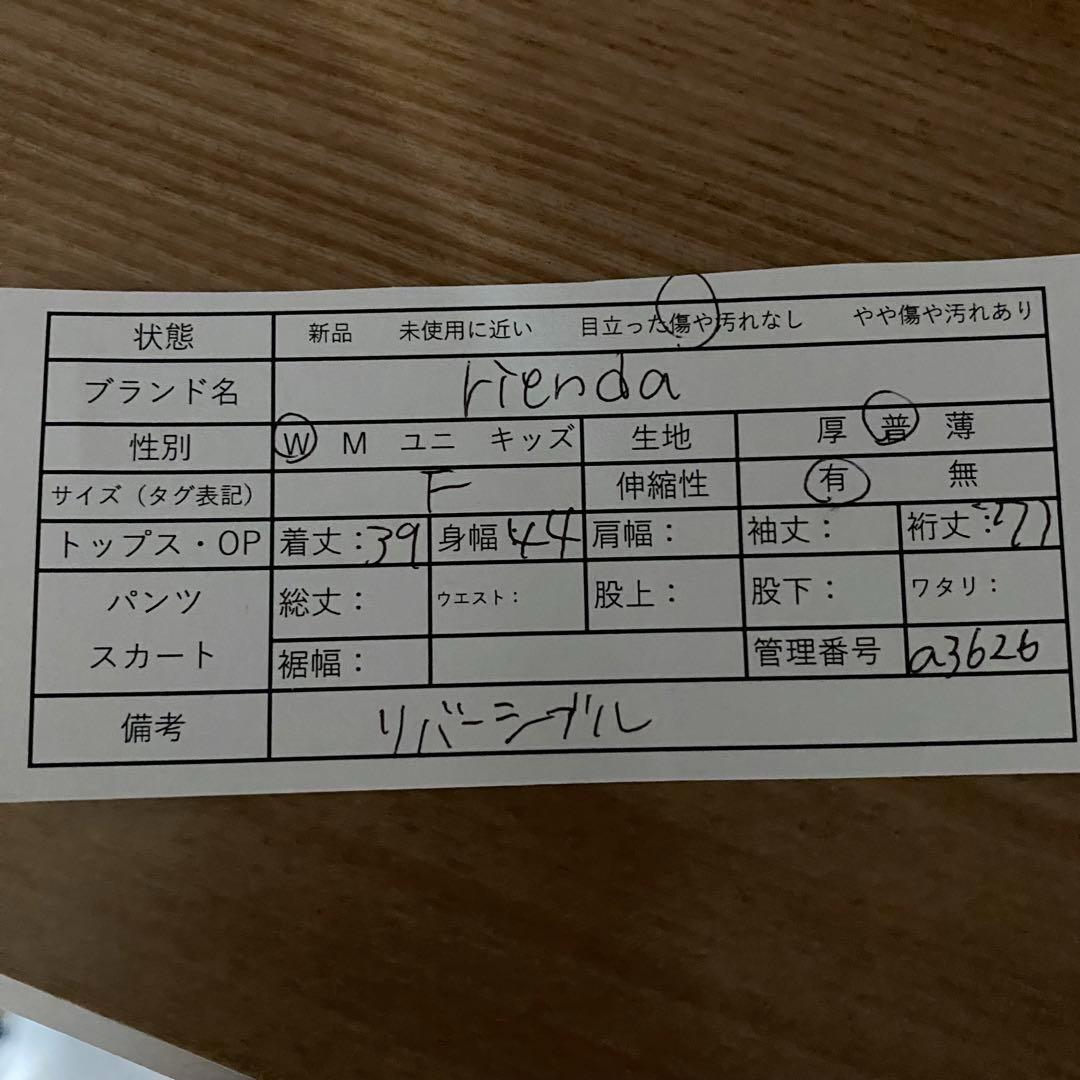 状態 新品 未使用に近い 目立った傷や汚れなし やや傷や汚れあり
ブランド名 rienda
性別 W M ユニ キッズ 生地 厚 普 薄
サイズ（タグ表記） F 伸縮性 有 無
トップス・OP 着丈：39 身幅：44 肩幅： 袖丈： 裄丈：77
パンツ 総丈： ウエスト： 股上： 股下： ワタリ：
スカート 裾幅： 管理番号 a3626
備考 リバーシブル